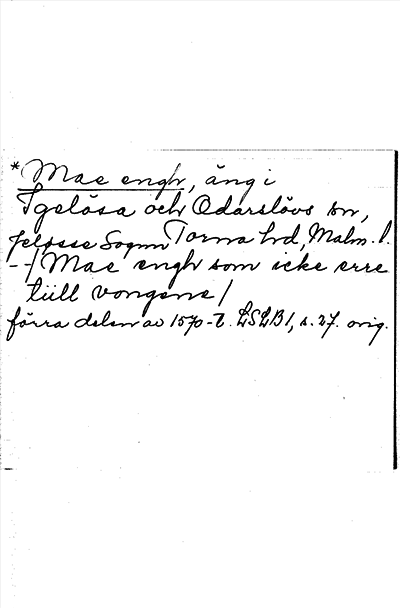 *Mae engh, äng i
Igelösa och Odarslövs sn,
Jelösse Sognn Torna hd, Malm. l.
- - / Mae engh som icke erre
tiill vongene /
förra delen av 1570-t. LSLB 1, s. 27. orig.